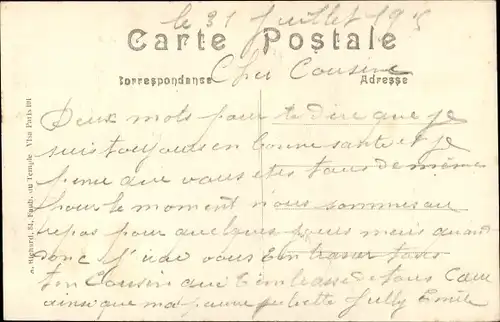 le 31 Juillet 19
Carte Postale
Correspondance Adresse
Cher Cousine
Deux mots pour te dire que je
suis toujours en bonne sante et je
pense que vous etes tous de même
pour le moment nous sommes au
repos pour quelques jours mais quand
donc vous tous
ton Cousin qui tous
ainsi que ma Emile
A. Richard, 84, Faub. du Temple. Visa Paris 101